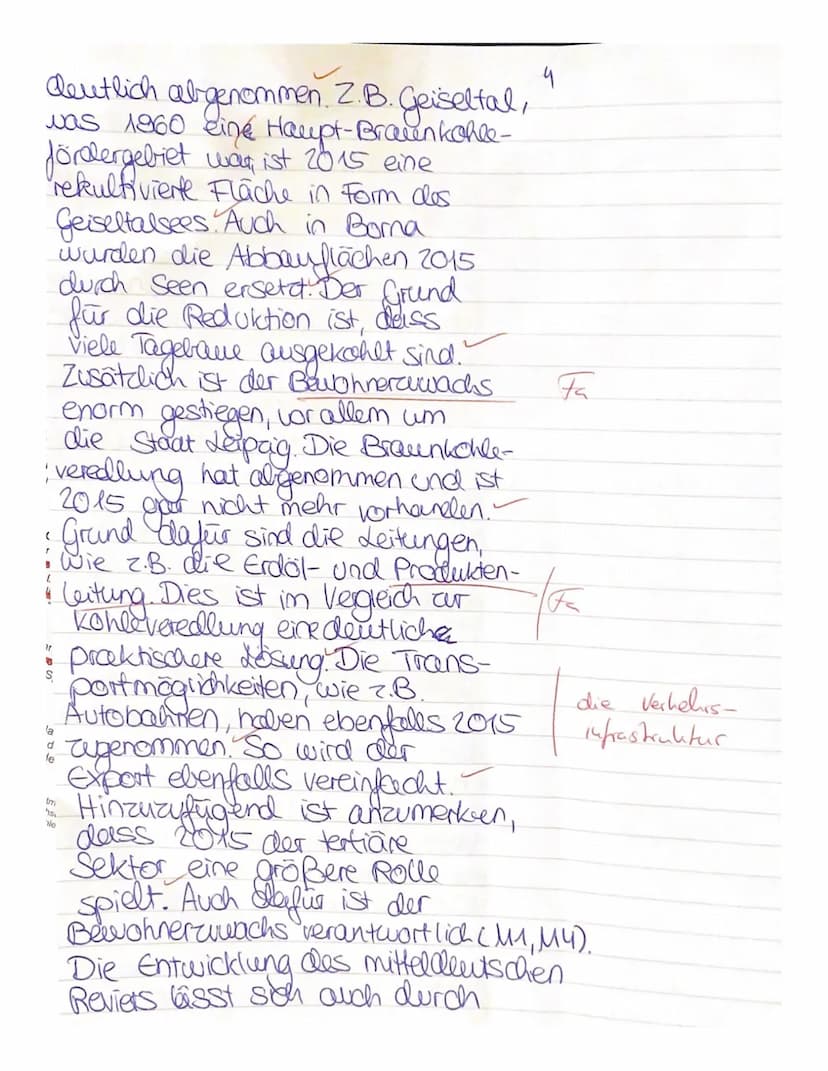 4
deutlich abgenommen. Z.B. Geiseltal,
was 1960 eine Haupt-Braunkohle-
fördergebiet war, ist 2015 eine
rekultivierte Fläche in Form des
Geiseltalsees. Auch in Borna
wurden die Abbauflächen 2015
durch Seen ersetzt. Der Grund
für die Reduktion ist, dass
viele Tagebaue ausgekohlt sind.
Zusätzlich ist der Bewohnerzuwachs
Fa
enorm gestiegen, vor allem um
die Stadt Leipzig. Die Braunkohle-
veredlung hat abgenommen und ist
2015 gar nicht mehr vorhanden.
Grund dafür sind die Leitungen,
wie z.B. die Erdöl- und Produkten-
leitung. Dies ist im Vergleich zur
Fa
Kohleveredlung eine deutliche
praktischere Lösung. Die Trans-
portmöglichkeiten, wie z.B.
Autobahnen, haben ebenfalls 2015
die Verkehrs-
infrastruktur
zugenommen. So wird der
Export ebenfalls vereinfacht.
Hinzuzufügend ist anzumerken,
dass 2015 der tertiäre
Sektor eine größere Rolle
spielt. Auch dafür ist der
Bewohnerzuwachs verantwortlich (M1, M4).
Die Entwicklung des mitteldeutschen
Reviers lässt sich auch durch